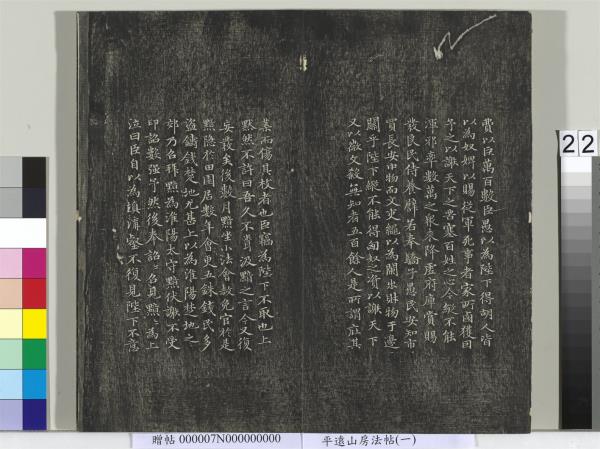 費以巨萬百數臣愚以為陛下得胡人皆
以為奴婢以賜從軍死事者家所鹵獲因
予之以謝天下之苦塞百姓之心今縱不能
渾邪率數萬之衆來降虛府庫賞賜
發良民侍養辟若奉驕子愚民安知市
買長安中物而文吏繩以為闌出財物于邊
關乎陛下縱不能得匈奴之資以謝天下
又以微文殺無知者五百餘人是所謂庇其
葉而傷其枝者也臣竊為陛下不取也上
默然不許曰吾久不聞汲黯之言今又復
妄發矣後數月黯坐小法會赦免官於是
黯隱於田園居數年會更五銖錢民多
盜鑄錢楚地尤甚上以為淮陽楚地之
郊乃召拜黯為淮陽太守黯伏謝不受
印詔數強予然後奉詔〻召見黯〻為上
泣曰臣自以為填溝壑不復見陛下不意
22
贈帖 000007N000000000
平遠山房法帖(一)